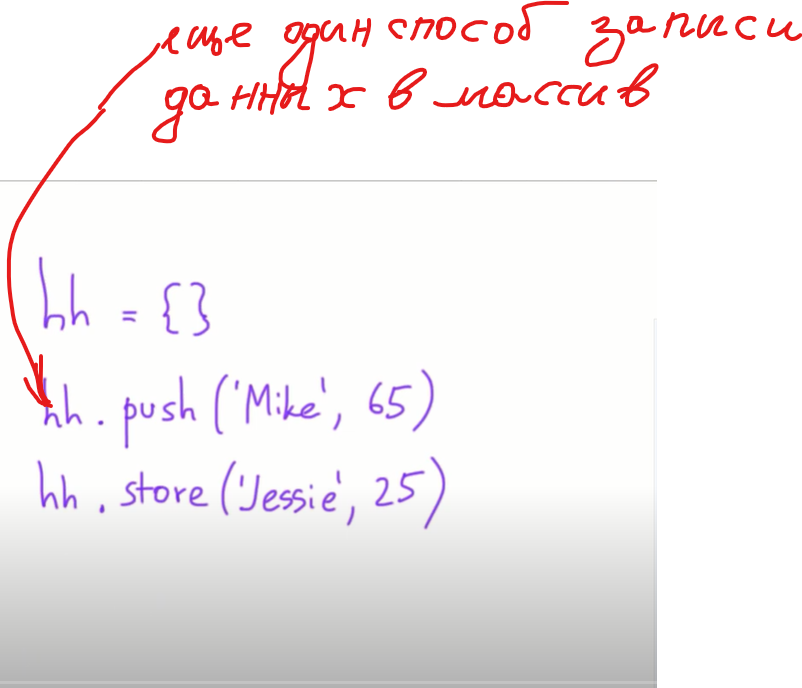 еще один способ записи
данных в массив
hh = {}
hh . push ('Mike', 65)
hh . store ('Jessie', 25)